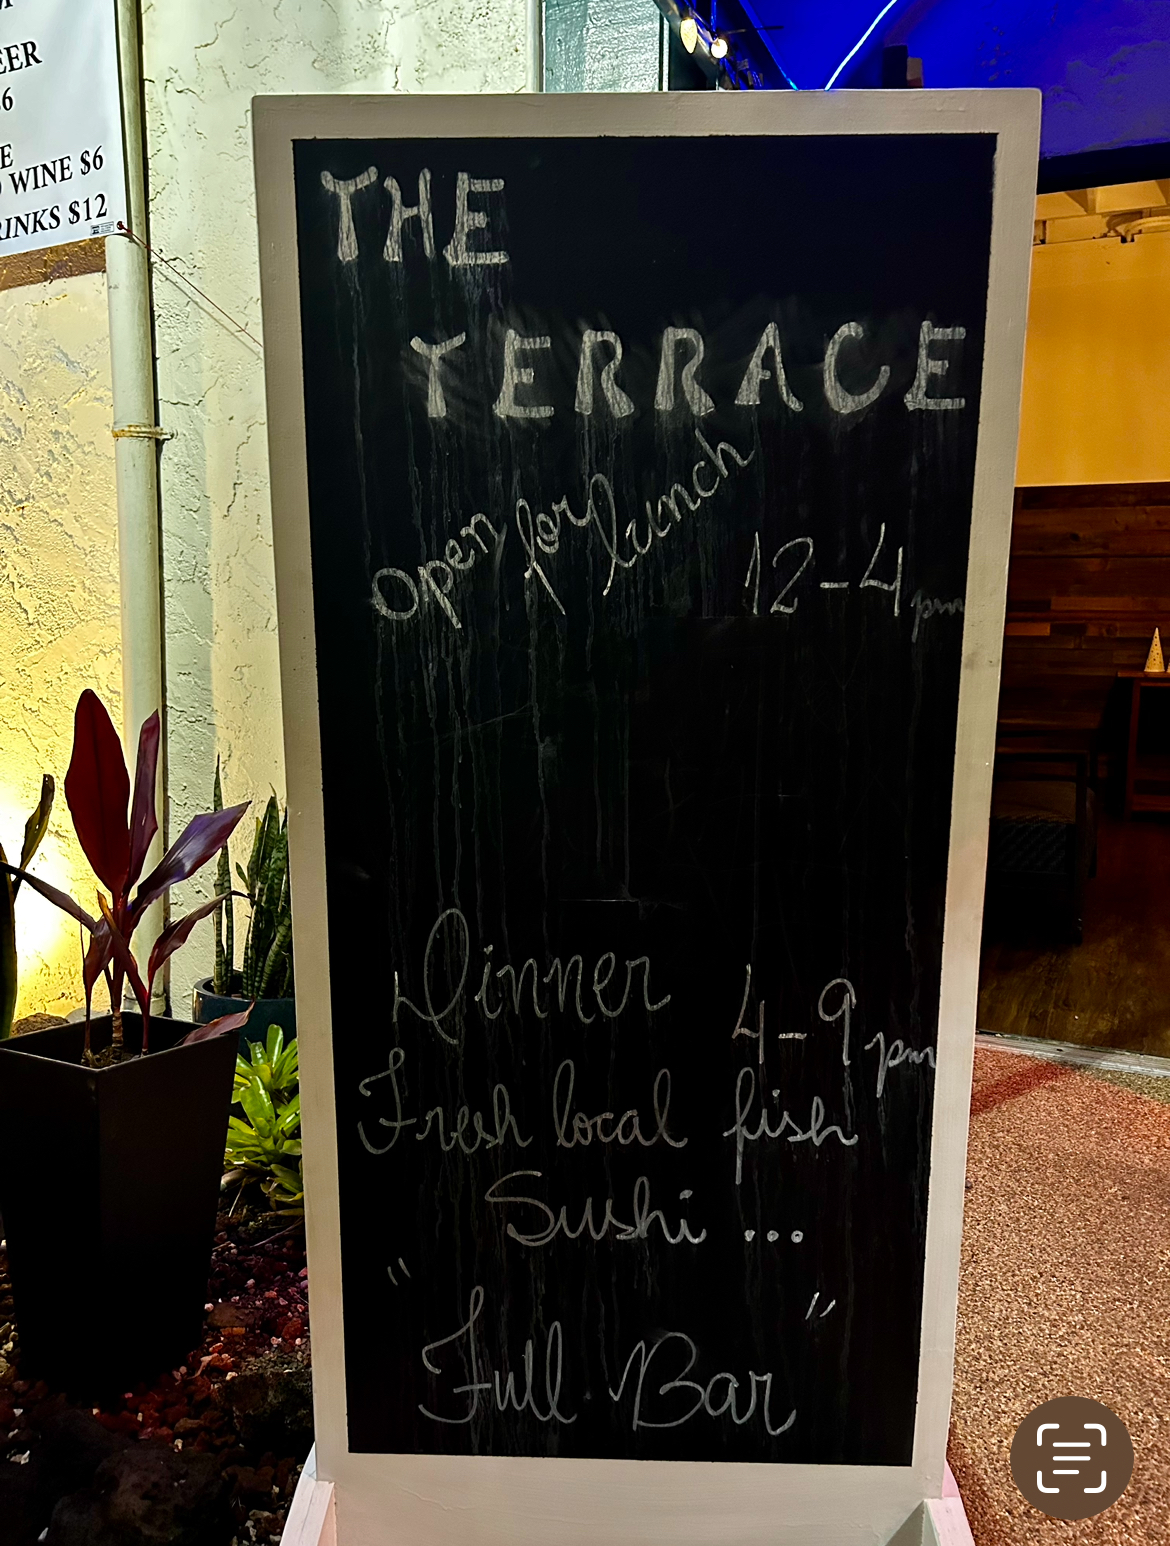 EER
6
E
WINE $6
RINKS $12
THE
TERRACE
Open for lunch
12-4 pm
Dinner
4-9 pm
Fresh local fish
Sushi ...
"Full Bar"